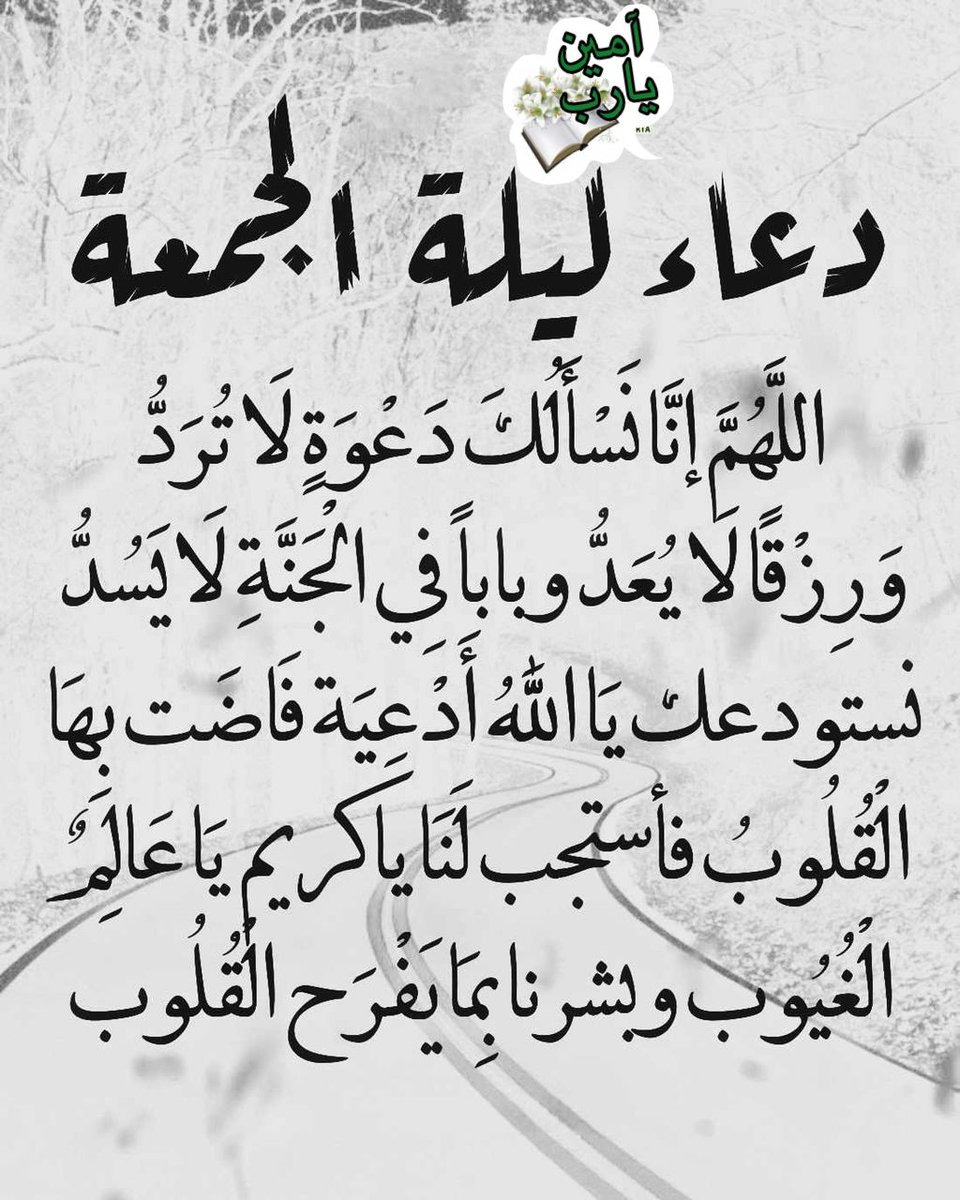 آمين
يارب
دعاء ليلة الجمعة
اللَّهُمَّ إنَّا نَسْأَلُكَ دَعْوَةٍ لَا تُرَدُّ
وَرِزْقًا لَا يُعَدُّ وباباً فَي الْجَنَّةِ لَا يَسُدُّ
نستودعك يَا اللَّهُ أَدْعِيَة فَاضَت بِهَا
الْقُلُوبُ فأستجب لَنَا ياكريم يَا عَالِمٌ
الْغُيُوب وبشرنا بِمَا يَفْرَح الْقُلُوب